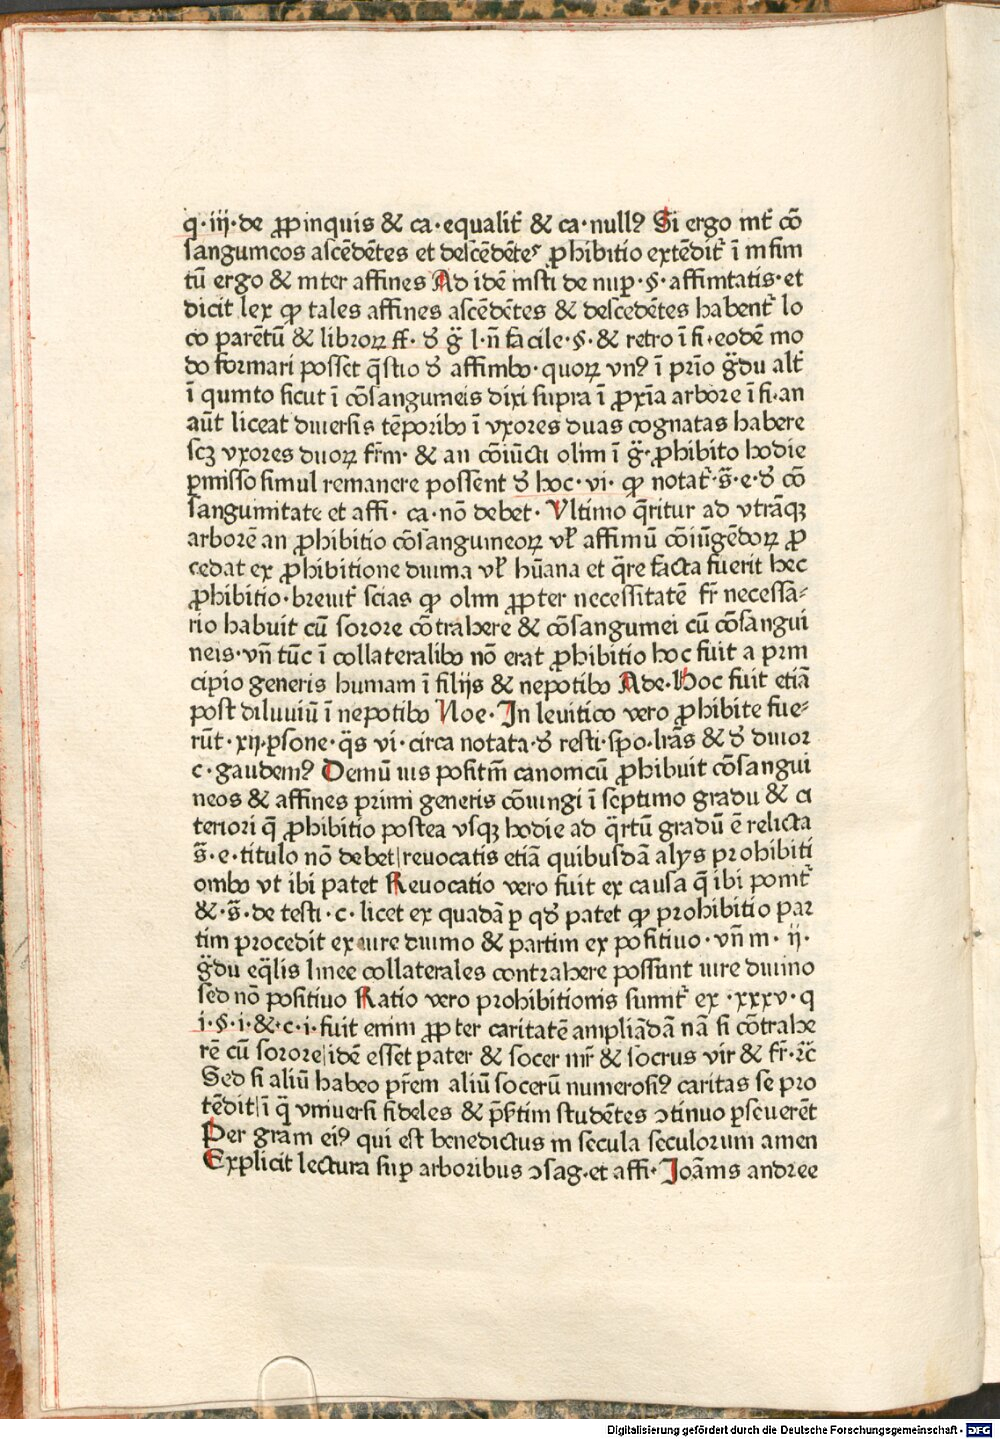 q·iij·de ꝓpinquis & ca·equalit̃ & ca·nullꝰ Si ergo int̃ cõ
sanguineos ascẽdẽtes et descẽdẽtes ꝓhibitio extẽdit̃ ĩ infini
tũ ergo & inter affines Ad idẽ insti de nup̱·§·affinitatis·et
dicit lex ꝙ tales affines ascẽdẽtes & descẽdẽtes habent̃ lo
co parẽtũ & libroꝝ ff· đ g̃ l·ñ facile·§·& retro ĩ fi·eodẽ mo
do formari posset q̃stio đ affinibꝰ·quoꝝ vnꝰ ĩ pr̃io g̃du alt̃
ĩ quinto sicut ĩ cõsanguineis dixi supra ĩ ꝓxĩa arbore ĩ fi·an
aũt liceat diuersis tẽporibꝰ ĩ vxores duas cognatas habere
scꝫ vxores duoꝝ fr̃m· & an cõiũcti olim ĩ g̃·ꝓhibito hodie
ꝑmisso simul remanere possent đ hoc·vi· ꝙ notat̃·s̃·e·đ cõ
sanguinitate et affi· ca·nõ debet· Vltimo q̃ritur ad vtrãqꝫ
arborẽ an ꝓhibitio cõsanguineoꝝ vł affiniũ cõiũgẽdoꝝ ꝓ
cedat ex ꝓhibitione diuina vł hũana et q̃re facta fuerit hec
ꝓhibitio·breuit̃ scias ꝙ olim ꝓpter necessitatẽ fr̃ necessa⸗
rio habuit cũ sorore cõtrahere & cõsanguinei cũ cõsangui
neis·vñ tũc ĩ collateralibꝰ nõ erat ꝓhibitio hoc fuit a prin
cipio generis humani ĩ filijs & nepotibꝰ Ade·Hoc fuit etiã
post diluuiũ ĩ nepotibꝰ Noe·In leuitico vero ꝓhibite fue⸗
rũt·xij·ꝑsone·q̃s vi·circa notata·đ resti·spo·lr̃as & đ diuor
c·gaudemꝰ Demũ ius positiũ canonicũ ꝓhibuit cõsangui
neos & affines primi generis cõiungi ĩ septimo gradu & ci
teriori q̃ ꝓhibitio postea vsqꝫ hodie ad q̃rtũ gradũ ẽ relicta
s̃·e·titulo nõ debet revocatis etiã quibusdã alijs prohibiti
onibꝰ vt ibi patet Reuocatio vero fuit ex causa q̃ ibi ponit̃
&·s̃·de testi·c·licet ex quadã ꝑ qđ patet ꝙ prohibitio par
tim procedit ex iure diuino & partim ex positiuo·vñ in·ij·
g̃du eq̃lis linee collaterales contrahere possunt iure diuino
sed nõ positiuo Ratio vero prohibitionis sumit̃ ex·xxxv·q
i·§·i·&·c·i·fuit enim ꝓpter caritatẽ ampliãdã nã si cõtrahe
rẽ cũ sorore idẽ esset pater & socer mr̃ & socrus vir & fr̃·ꝛc̃
Sed si aliũ habeo pr̃em aliũ socerũ numerosiꝰ caritas se pro
tẽdit ĩ q̃ vniuersi fideles & p̃ſ̃tim studẽtes ↄtinuo ꝑseuerẽt
Per gram eiꝰ qui est benedictus in secula seculorum amen
Explicit lectura suꝑ arboribus ↄsag·et affi·Joãnis andree
Digitalisierung gefördert durch die Deutsche Forschungsgemeinschaft - DFG